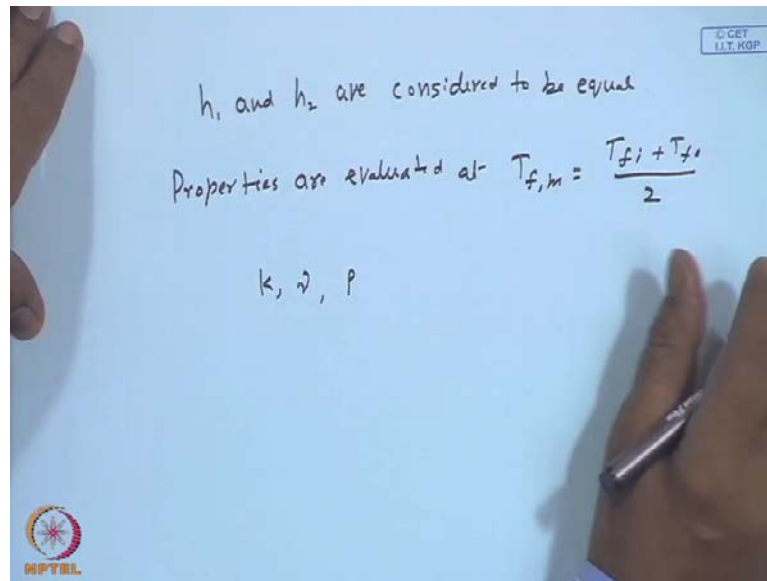 © CET
I.I.T. KGP
h₁ and h₂ are considered to be equal
Properties are evaluated at T_{f,m} = \frac{T_{fi} + T_{fo}}{2}
k, ν, ρ
NPTEL